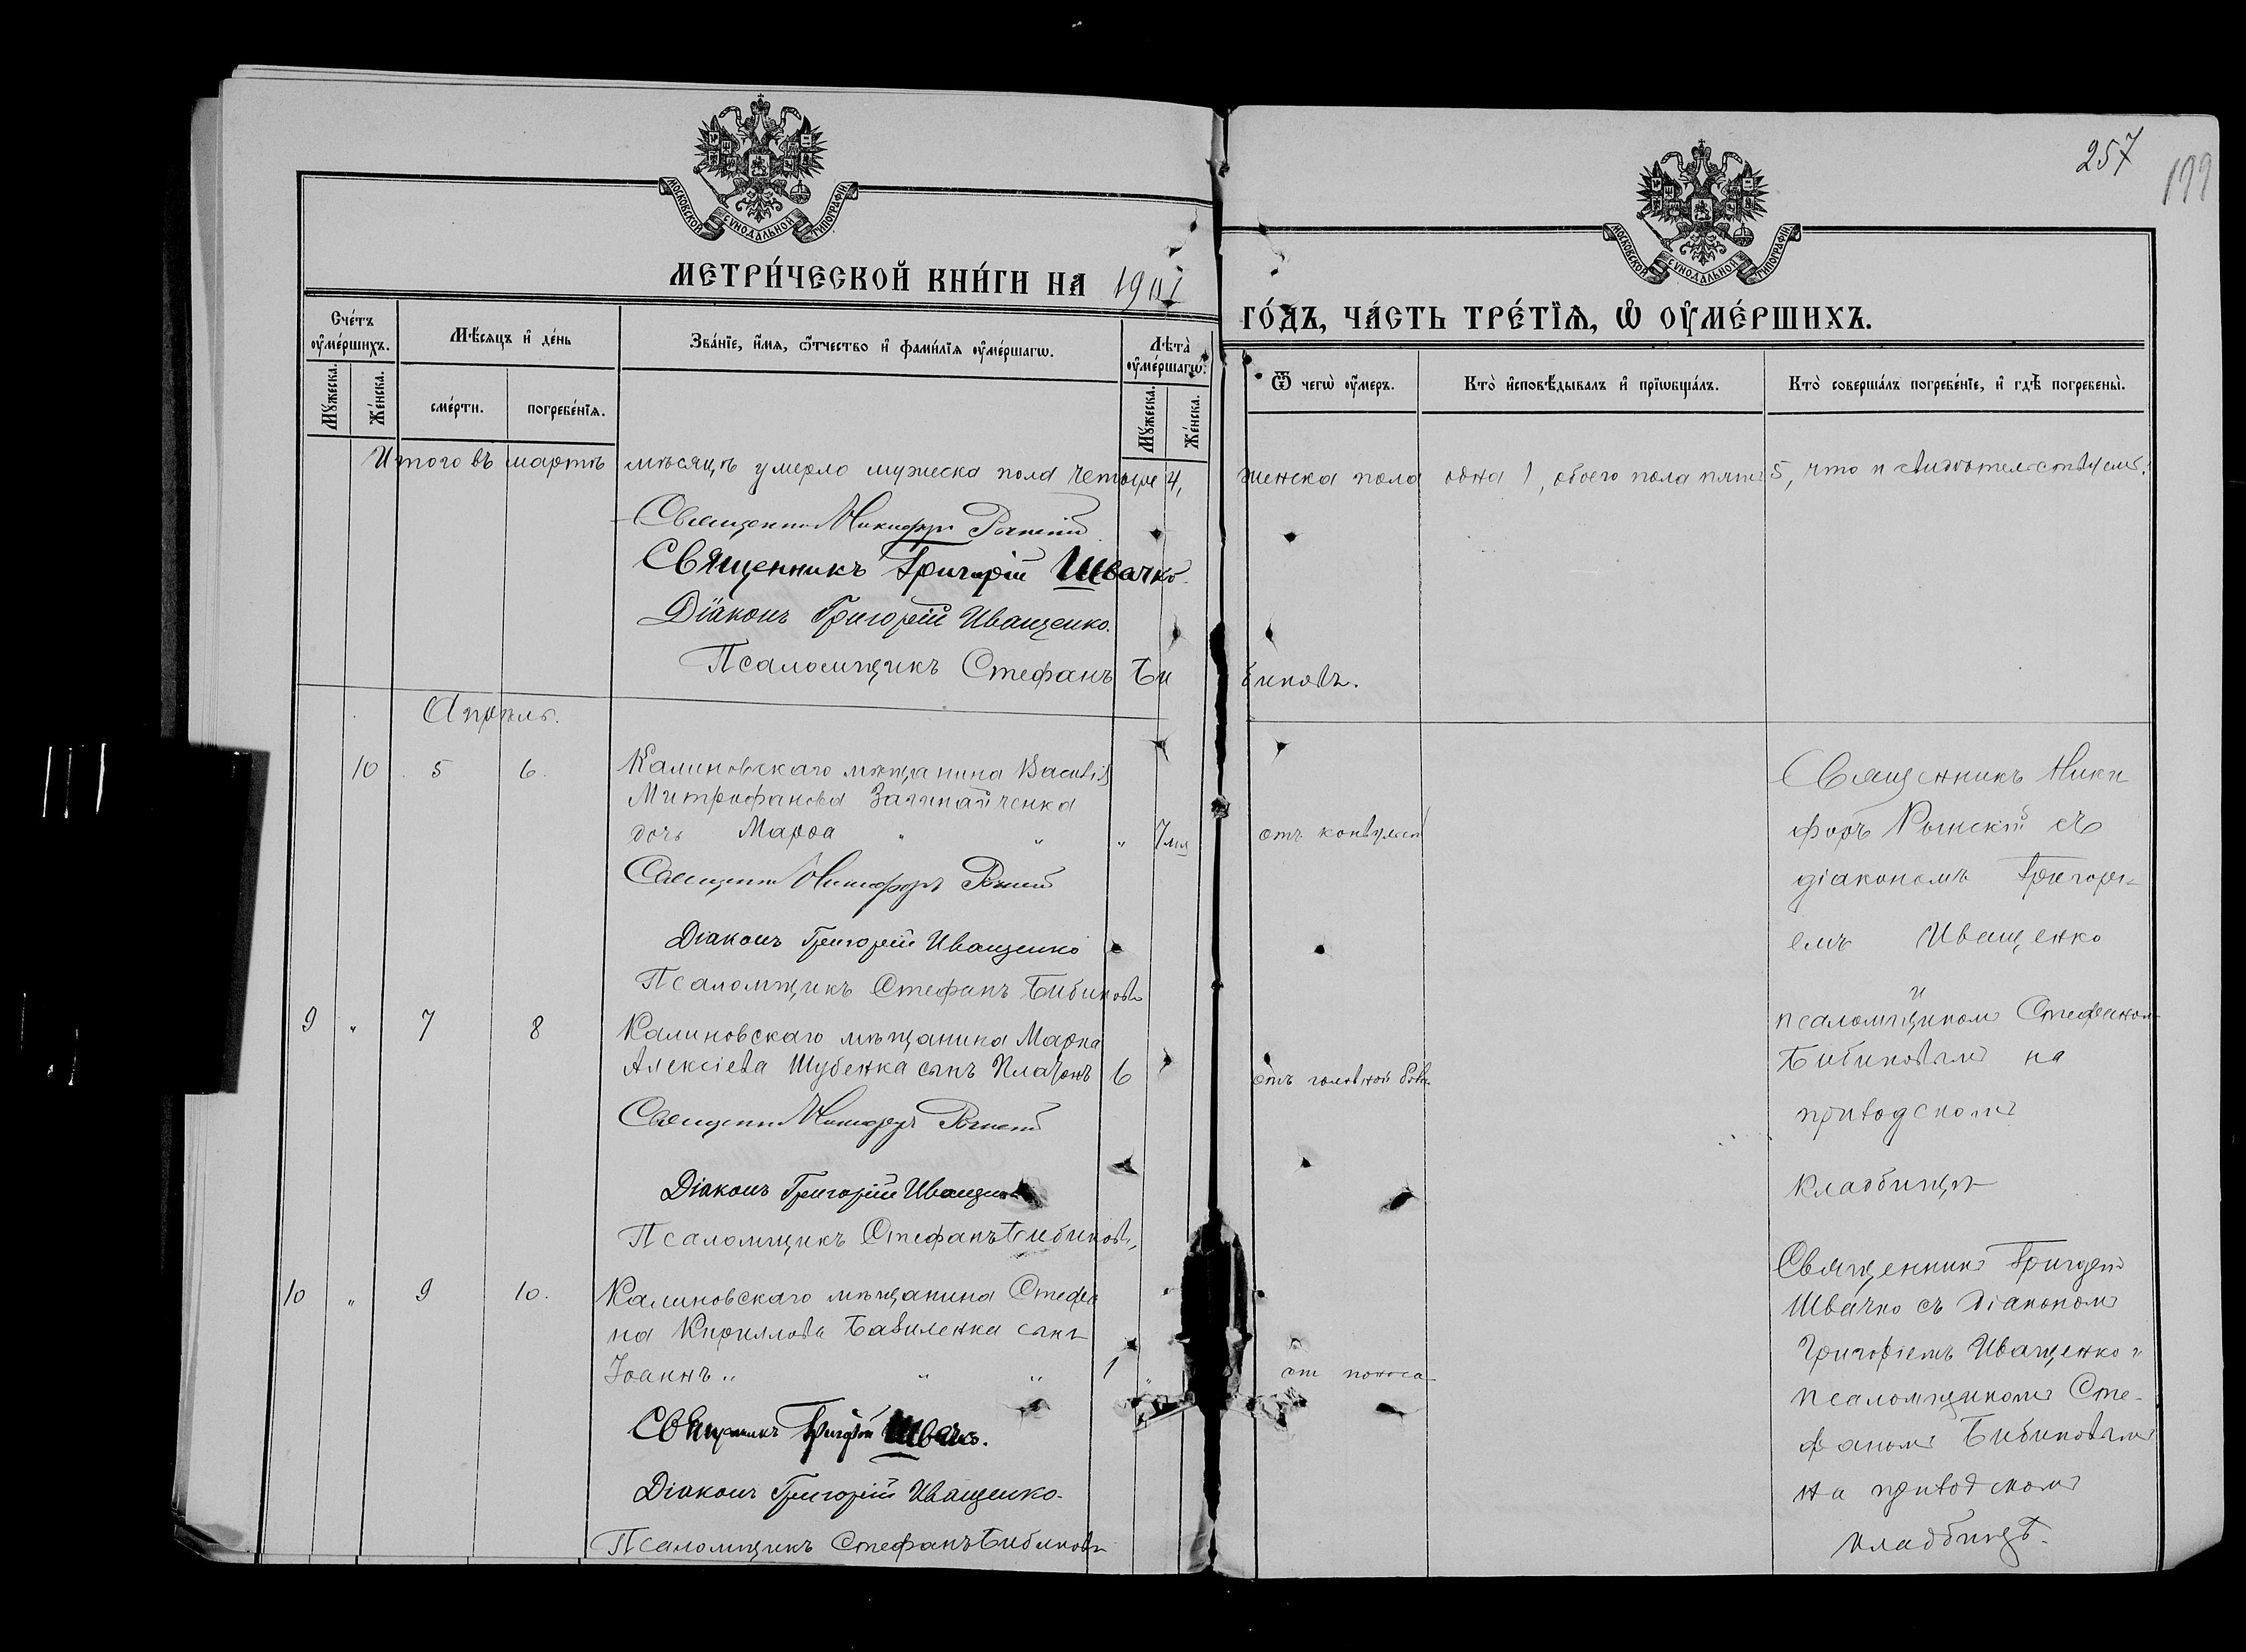 257
199
МОСКОВСКОЙ СѴНОДАЛЬНОЙ ТИПОГРАФІИ
МОСКОВСКОЙ СѴНОДАЛЬНОЙ ТИПОГРАФІИ
МЕТРИ́ЧЕСКОЙ КНИ́ГИ НА 1901
ГО́ДЪ, ЧА́СТЬ ТРЕ́ТЇѦ, Ѡ҆ ОУ҆МЕ́РШИХЪ.
Сче́тъ оу҆ме́ршихъ.
Мꙋ́жеска.
Же́нска.
Мѣ́сяцъ и҆ де́нь
сме́рти.
погребе́нїя.
Зва́нїе, и҆́мя, ѻ҆́тчество и҆ фами́лїя оу҆ме́ршагѡ.
Лѣ́та оу҆ме́ршагѡ.
Мꙋ́жеска.
Же́нска.
Ѿ чегѡ̀ оу҆́меръ.
Кто̀ и҆сповѣ́дывалъ и҆ прїѡбща́лъ.
Кто̀ соверша́лъ погребе́нїе, и҆ гдѣ̀ погребены̀.
Итого въ мартѣ мѣсяцѣ умерло мужеска пола четыре 4, женска пола одна 1, обоего пола пять 5, что и свидѣтельствуемъ:
Священникъ Никифоръ
Священникъ Григорій Швачко.
Діаконъ Григорій Иващенко.
Псаломщикъ Стефанъ Бибиковъ.
Апрѣль.
10 5 6.
Калиновскаго мѣщанина Василія
Митрофанова
дочь Марѳа " " " 7 мѣ
отъ конвульсій
Священникъ Никифоръ
Діаконъ Григорій Иващенко
Псаломщикъ Стефанъ Бибиковъ
Священникъ Ники
форъ съ
діакономъ Григорі-
емъ Иващенко
и
псаломщикомъ Стефаномъ
Бибиковымъ на
приходскомъ
кладбищѣ
9 " 7 8
Калиновскаго мѣщанина Марка
Алексіева Шубенка сынъ Платонъ 6
отъ головной боли
Священникъ Никифоръ
Діаконъ Григорій Иващенко
Псаломщикъ Стефанъ Бибиковъ
10 " 9 10.
Калиновскаго мѣщанина Стефа
на Кириллова Бавиленка сынъ
Іоаннъ " " " 1 "
отъ поноса
Священникъ Григорій Швачко.
Діаконъ Григорій Иващенко.
Псаломщикъ Стефанъ Бибиковъ
Священникъ Григорій
Швачко съ діакономъ
Григоріемъ Иващенко и
псаломщикомъ Сте-
фаномъ Бибиковымъ
на приходскомъ
кладбищѣ.